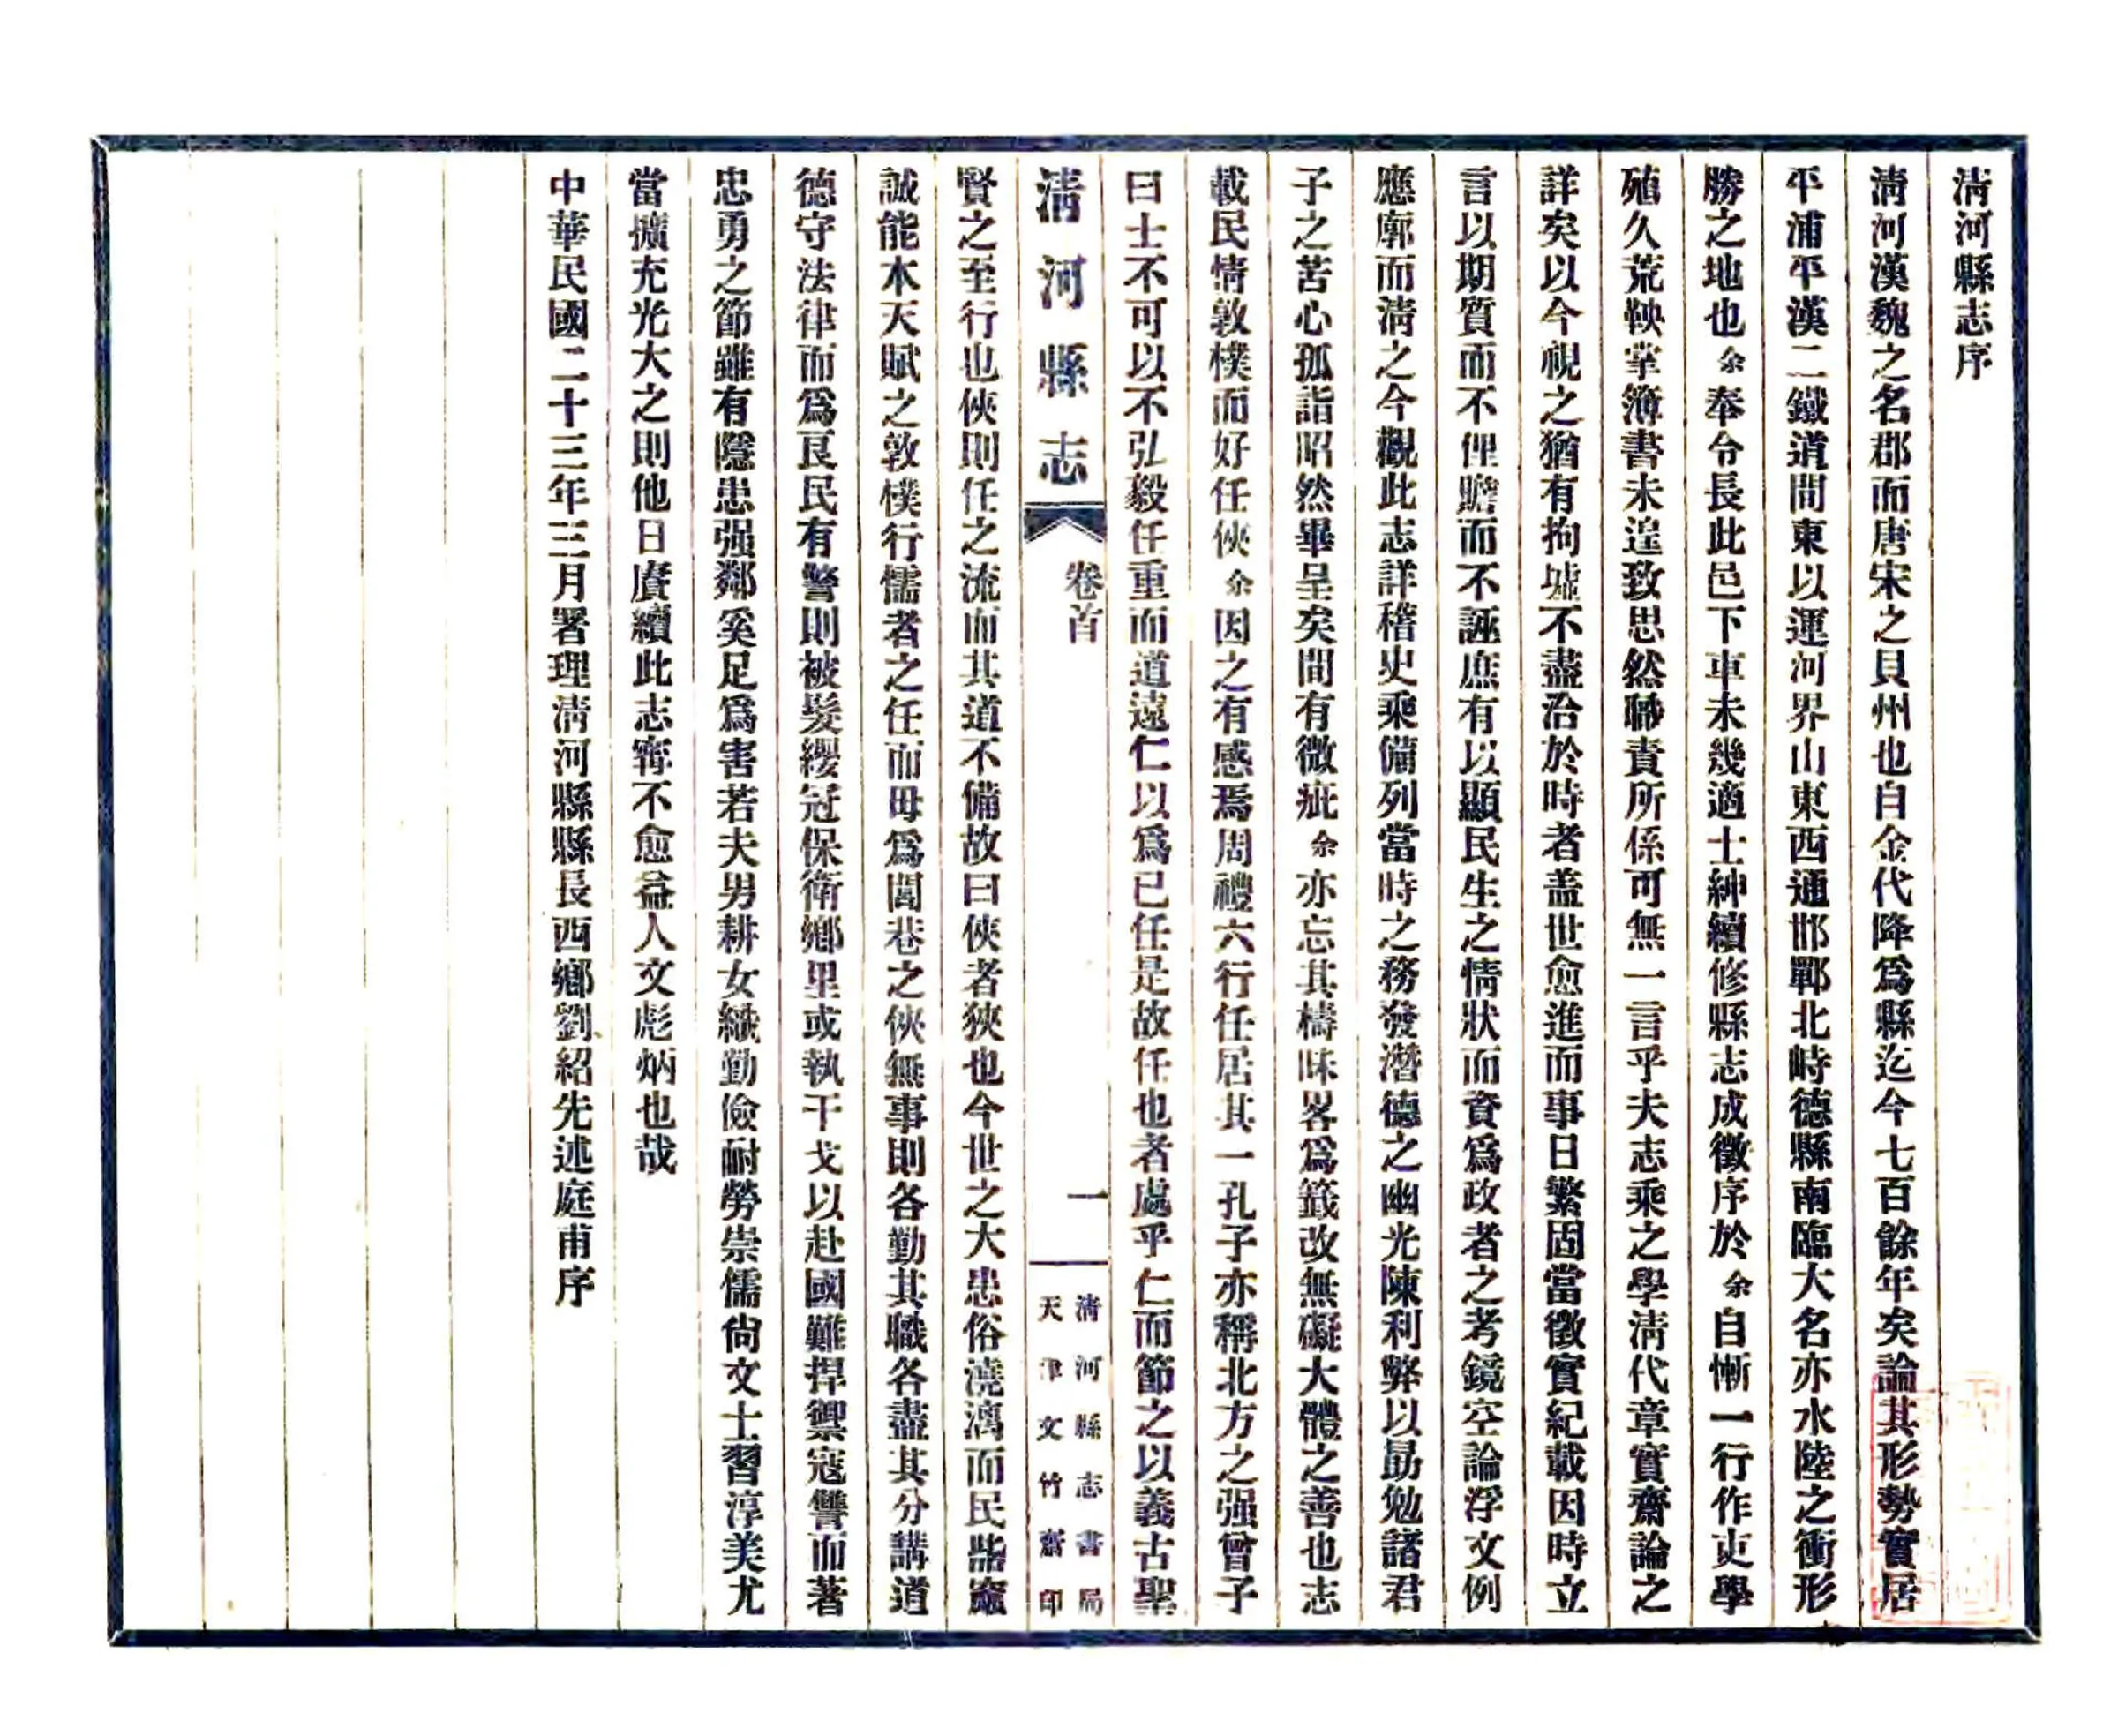 淸河縣志序
淸河漢魏之名郡而唐宋之貝州也自金代降爲縣迄今七百餘年矣論其形勢實居
平浦平漢二鐵道間東以運河界山東西通邯鄲北峙德縣南臨大名亦水陸之衝形
勝之地也余奉令長此邑下車未幾適士紳續修縣志成徵序於余自慚一行作吏學
殖久荒鞅掌簿書未遑致思然職責所係可無一言乎夫志乘之學淸代章實齋論之
詳矣以今視之猶有拘墟不盡洽於時者盖世愈進而事日繁固當徵實紀載因時立
言以期質而不俚贍而不誣庶有以顯民生之情狀而資爲政者之考鏡空論浮文例
應廓而淸之今觀此志詳稽史乘備列當時之務發潛德之幽光陳利弊以勗勉諸君
子之苦心孤詣昭然畢呈矣間有微疵余亦忘其檮昧畧爲籤改無礙大體之善也志
載民情敦樸而好任俠余因之有感焉周禮六行任居其一孔子亦稱北方之强曾子
曰士不可以不弘毅任重而道遠仁以爲已任是故任也者處乎仁而節之以義古聖
淸河縣志
卷首
一
淸河縣志書局
天津文竹齋印
賢之至行也俠則任之流而其道不備故曰俠者狹也今世之大患俗澆漓而民呰窳
誠能本天賦之敦樸行儒者之任而毋爲閭巷之俠無事則各勤其職各盡其分講道
德守法律而爲良民有警則被髮纓冠保衛鄕里或執干戈以赴國難捍禦寇讐而著
忠勇之節雖有隱患强鄰奚足爲害若夫男耕女織勤儉耐勞崇儒尙文士習淳美尤
當擴充光大之則他日賡續此志寗不愈益人文彪炳也哉
中華民國二十三年三月署理淸河縣縣長西鄕劉紹先述庭甫序